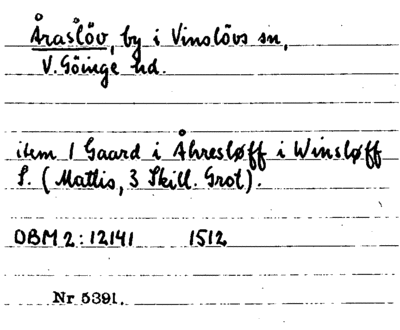 Åraslöv, by i Vinslövs sn,
V. Göinge hd.
item 1 Gaard i Åhresløff i Winsløff
S. (Mattis, 3 Skill. Grot).
DBM 2:12141 1512
Nr 5391.